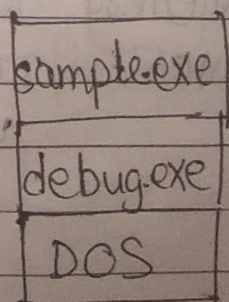 sample.exe
debug.exe
DOS